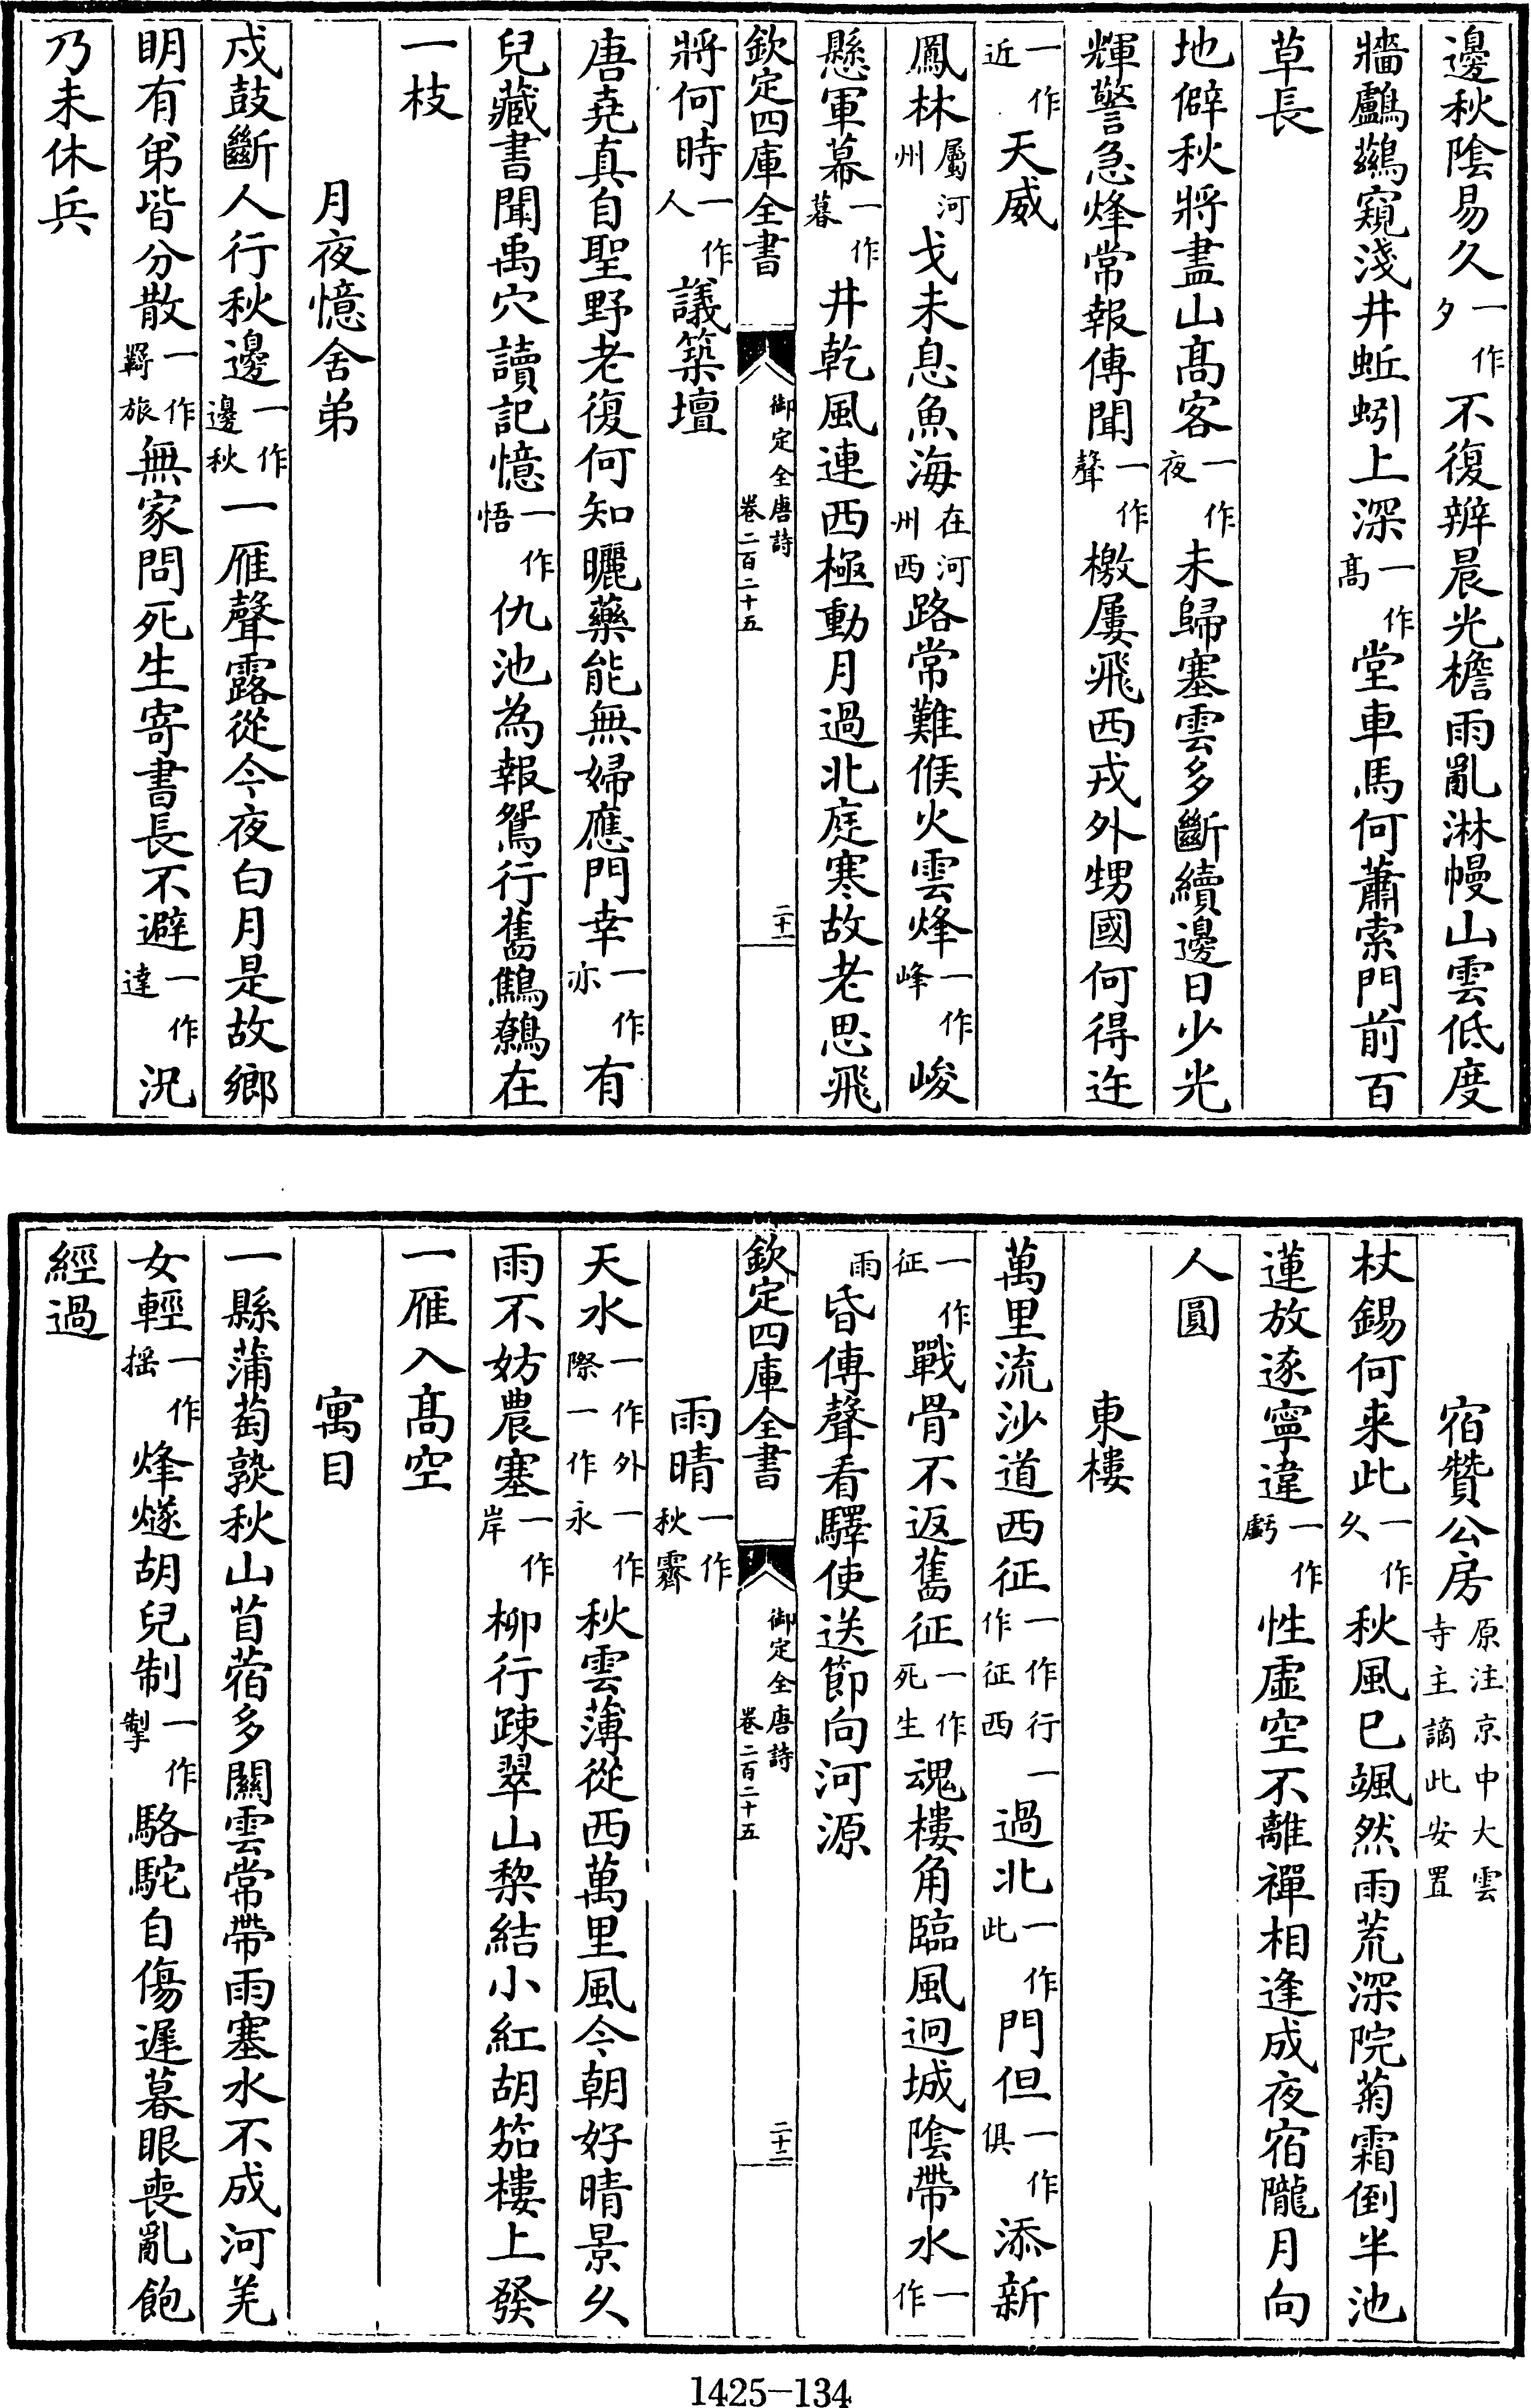 邊秋陰易久一作夕不復辨晨光檐雨亂淋幔山雲低度
牆鸕鷀窺淺井蚯蚓上深一作高堂車馬何蕭索門前百
草長
地僻秋將盡山髙客一作夜未歸塞雲多斷續邊日少光
輝警急烽常報傳聞一作聲檄屢飛西戎外甥國何得迕
一作近天威
鳳林屬河州戈未息魚海在河州西路常難候火雲烽一作峰峻
懸軍幕一作暮井乾風連西極動月過北庭寒故老思飛
欽定四庫全書 御定全唐詩 卷二百二十五 二十一
將何時一作人議築壇
唐堯真自聖野老復何知曬藥能無婦應門幸一作亦有
兒藏書聞禹穴讀記憶一作悟仇池為報鴛行舊鷦鷯在
一枝
月夜憶舍弟
戍鼓斷人行秋邊一作邊秋一雁聲露從今夜白月是故鄉
明有弟皆分散一作羇旅無家問死生寄書長不避一作達況
乃未休兵
宿贊公房原注京中大雲寺主謫此安置
杖錫何来此一作久秋風已颯然雨荒深院菊霜倒半池
蓮放逐寧違一作虧性虛空不離禪相逢成夜宿隴月向
人圓
東樓
萬里流沙道西征一作行一作征西過北一作此門但一作俱添新
一作征戰骨不返舊征一作死生魂樓角臨風迥城陰帶水一作
雨昏傳聲看驛使送節向河源
欽定四庫全書 御定全唐詩 卷二百二十五 二十二
雨晴一作秋霽
天水一作際一作外一作永秋雲薄從西萬里風今朝好晴景久
雨不妨農塞一作岸柳行疎翠山棃結小紅胡笳樓上發
一雁入髙空
寓目
一縣蒲萄熟秋山苜蓿多關雲常帶雨塞水不成河羌
女輕一作摇烽燧胡兒制一作掣駱駝自傷遲暮眼喪亂飽
經過
1425-134